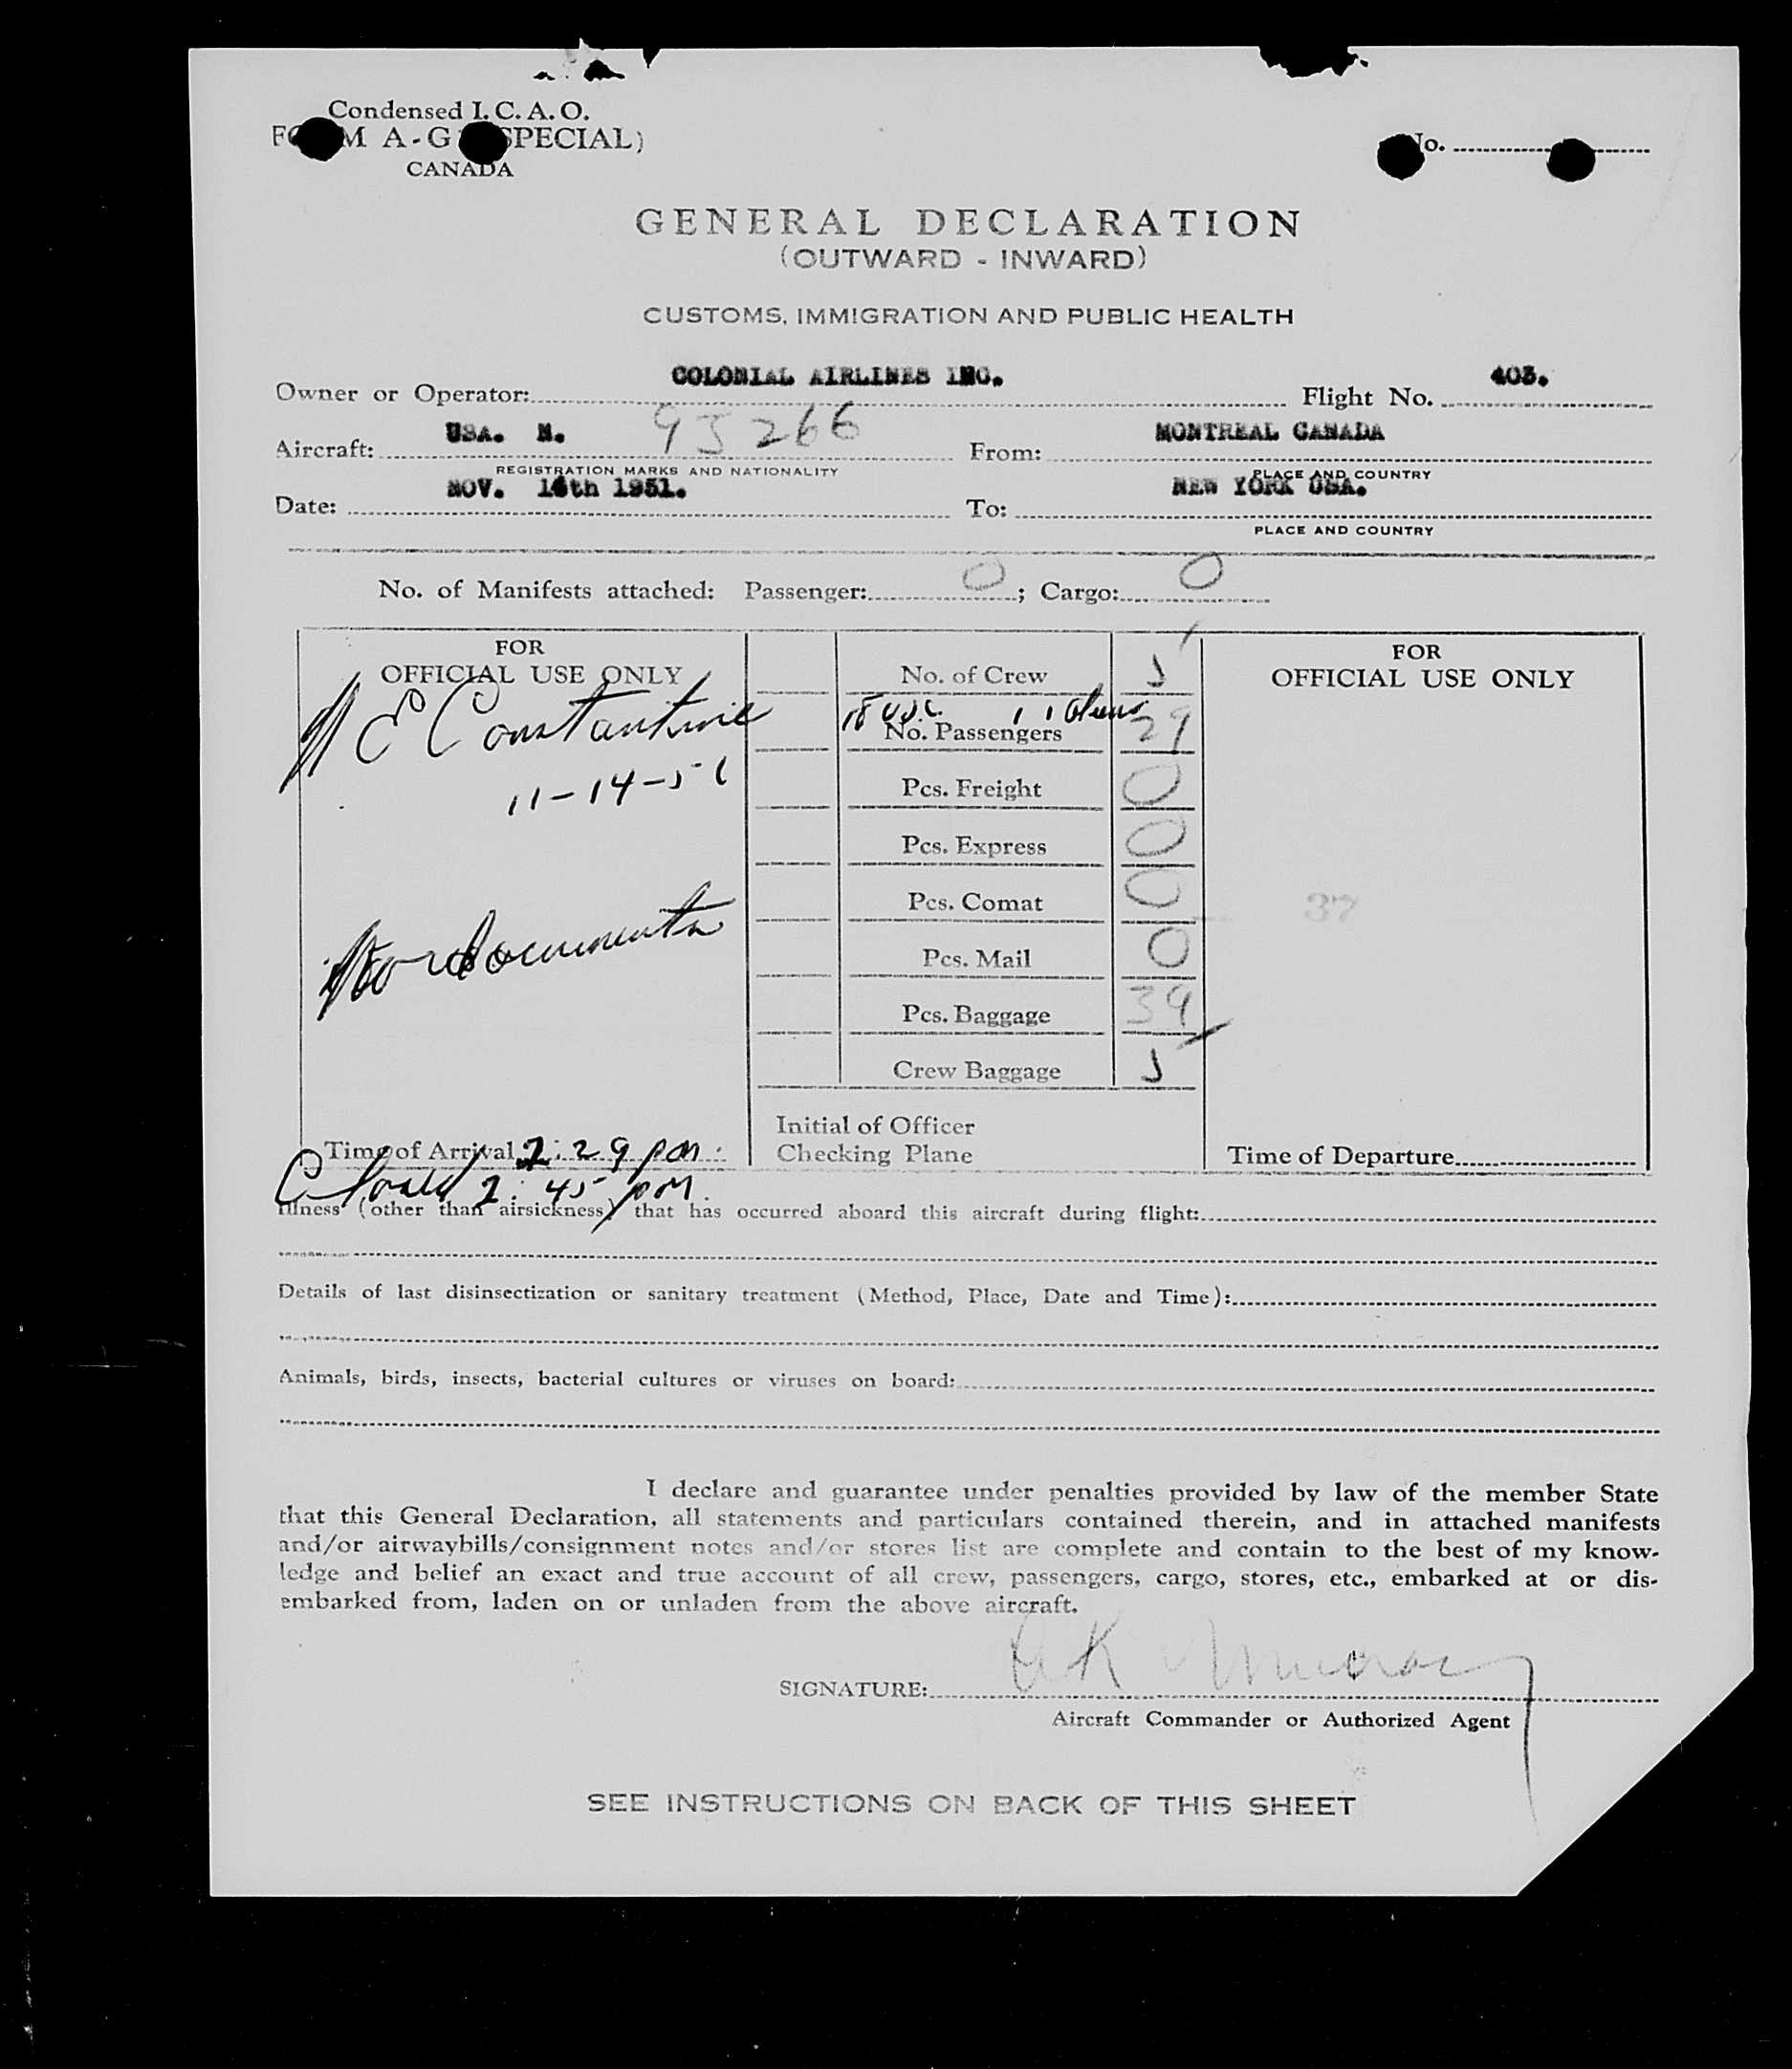 Condensed I. C. A. O.
FORM A-G (SPECIAL)
CANADA
No.
GENERAL DECLARATION
(OUTWARD - INWARD)
CUSTOMS, IMMIGRATION AND PUBLIC HEALTH
Owner or Operator: COLONIAL AIRLINES INC. Flight No. 403.
Aircraft: USA. N. 95266 From: MONTREAL CANADA
REGISTRATION MARKS AND NATIONALITY PLACE AND COUNTRY
Date: NOV. 14th 1951. To: NEW YORK USA.
PLACE AND COUNTRY
No. of Manifests attached: Passenger: 0 ; Cargo: 0
FOR
OFFICIAL USE ONLY
N E Constantine
11-14-51
No documents
Time of Arrival 2:29 pm.
Closed 2:45 pm.
No. of Crew 5
18 USC. 11 Aliens
No. Passengers 29
Pcs. Freight 0
Pcs. Express 0
Pcs. Comat 0
Pcs. Mail 0
Pcs. Baggage 39
Crew Baggage 5
Initial of Officer
Checking Plane
FOR
OFFICIAL USE ONLY
37
Time of Departure
Illness (other than airsickness) that has occurred aboard this aircraft during flight:
Details of last disinsectization or sanitary treatment (Method, Place, Date and Time):
Animals, birds, insects, bacterial cultures or viruses on board:
I declare and guarantee under penalties provided by law of the member State
that this General Declaration, all statements and particulars contained therein, and in attached manifests
and/or airwaybills/consignment notes and/or stores list are complete and contain to the best of my know-
ledge and belief an exact and true account of all crew, passengers, cargo, stores, etc., embarked at or dis-
embarked from, laden on or unladen from the above aircraft.
SIGNATURE:
Aircraft Commander or Authorized Agent
SEE INSTRUCTIONS ON BACK OF THIS SHEET